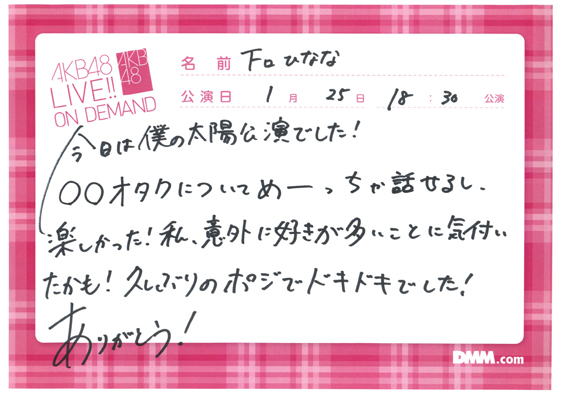 AKB48
LIVE!!
ON DEMAND
AKB
48
名前 下口ひなな
公演日 1月 25日 18:30 公演
今日は僕の太陽公演でした!
○○オタクについてめーっちゃ話せるし、
楽しかった!私、意外に好きが多いことに気付い
たかも!久しぶりのポジでドキドキでした!
ありがとう!
DMM.com